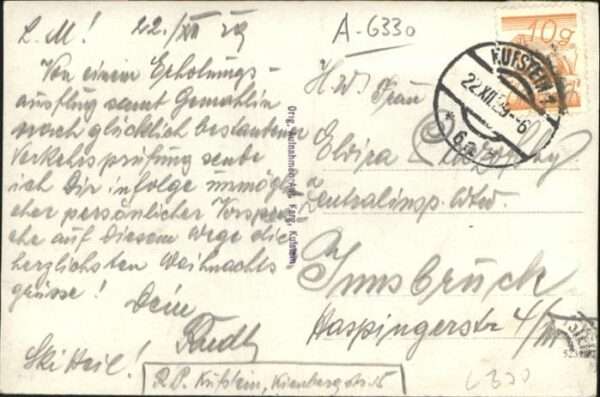 L. M! 22./XII 29
Von einem Erholungs-
ausflug samt Gemahlin
nach glücklich bestandener
Verkehrsprüfung sende
ich Dir infolge unmögli
cher persönlicher Vorspra
che auf diesem Wege die
herzlichsten Weihnachts
grüsse!
Dein
Ski Heil!
R.P. Kufstein, Kienbergstr. 15
Orig. Aufnahme u. Karg, Kufstein
A-6330
10g
KUFSTEIN 1
22.XII.29.-6
* 6
Frau
Elvira
Zentralinsp. Wtw.
Innsbruck
Haspingerstr 4/III
6330